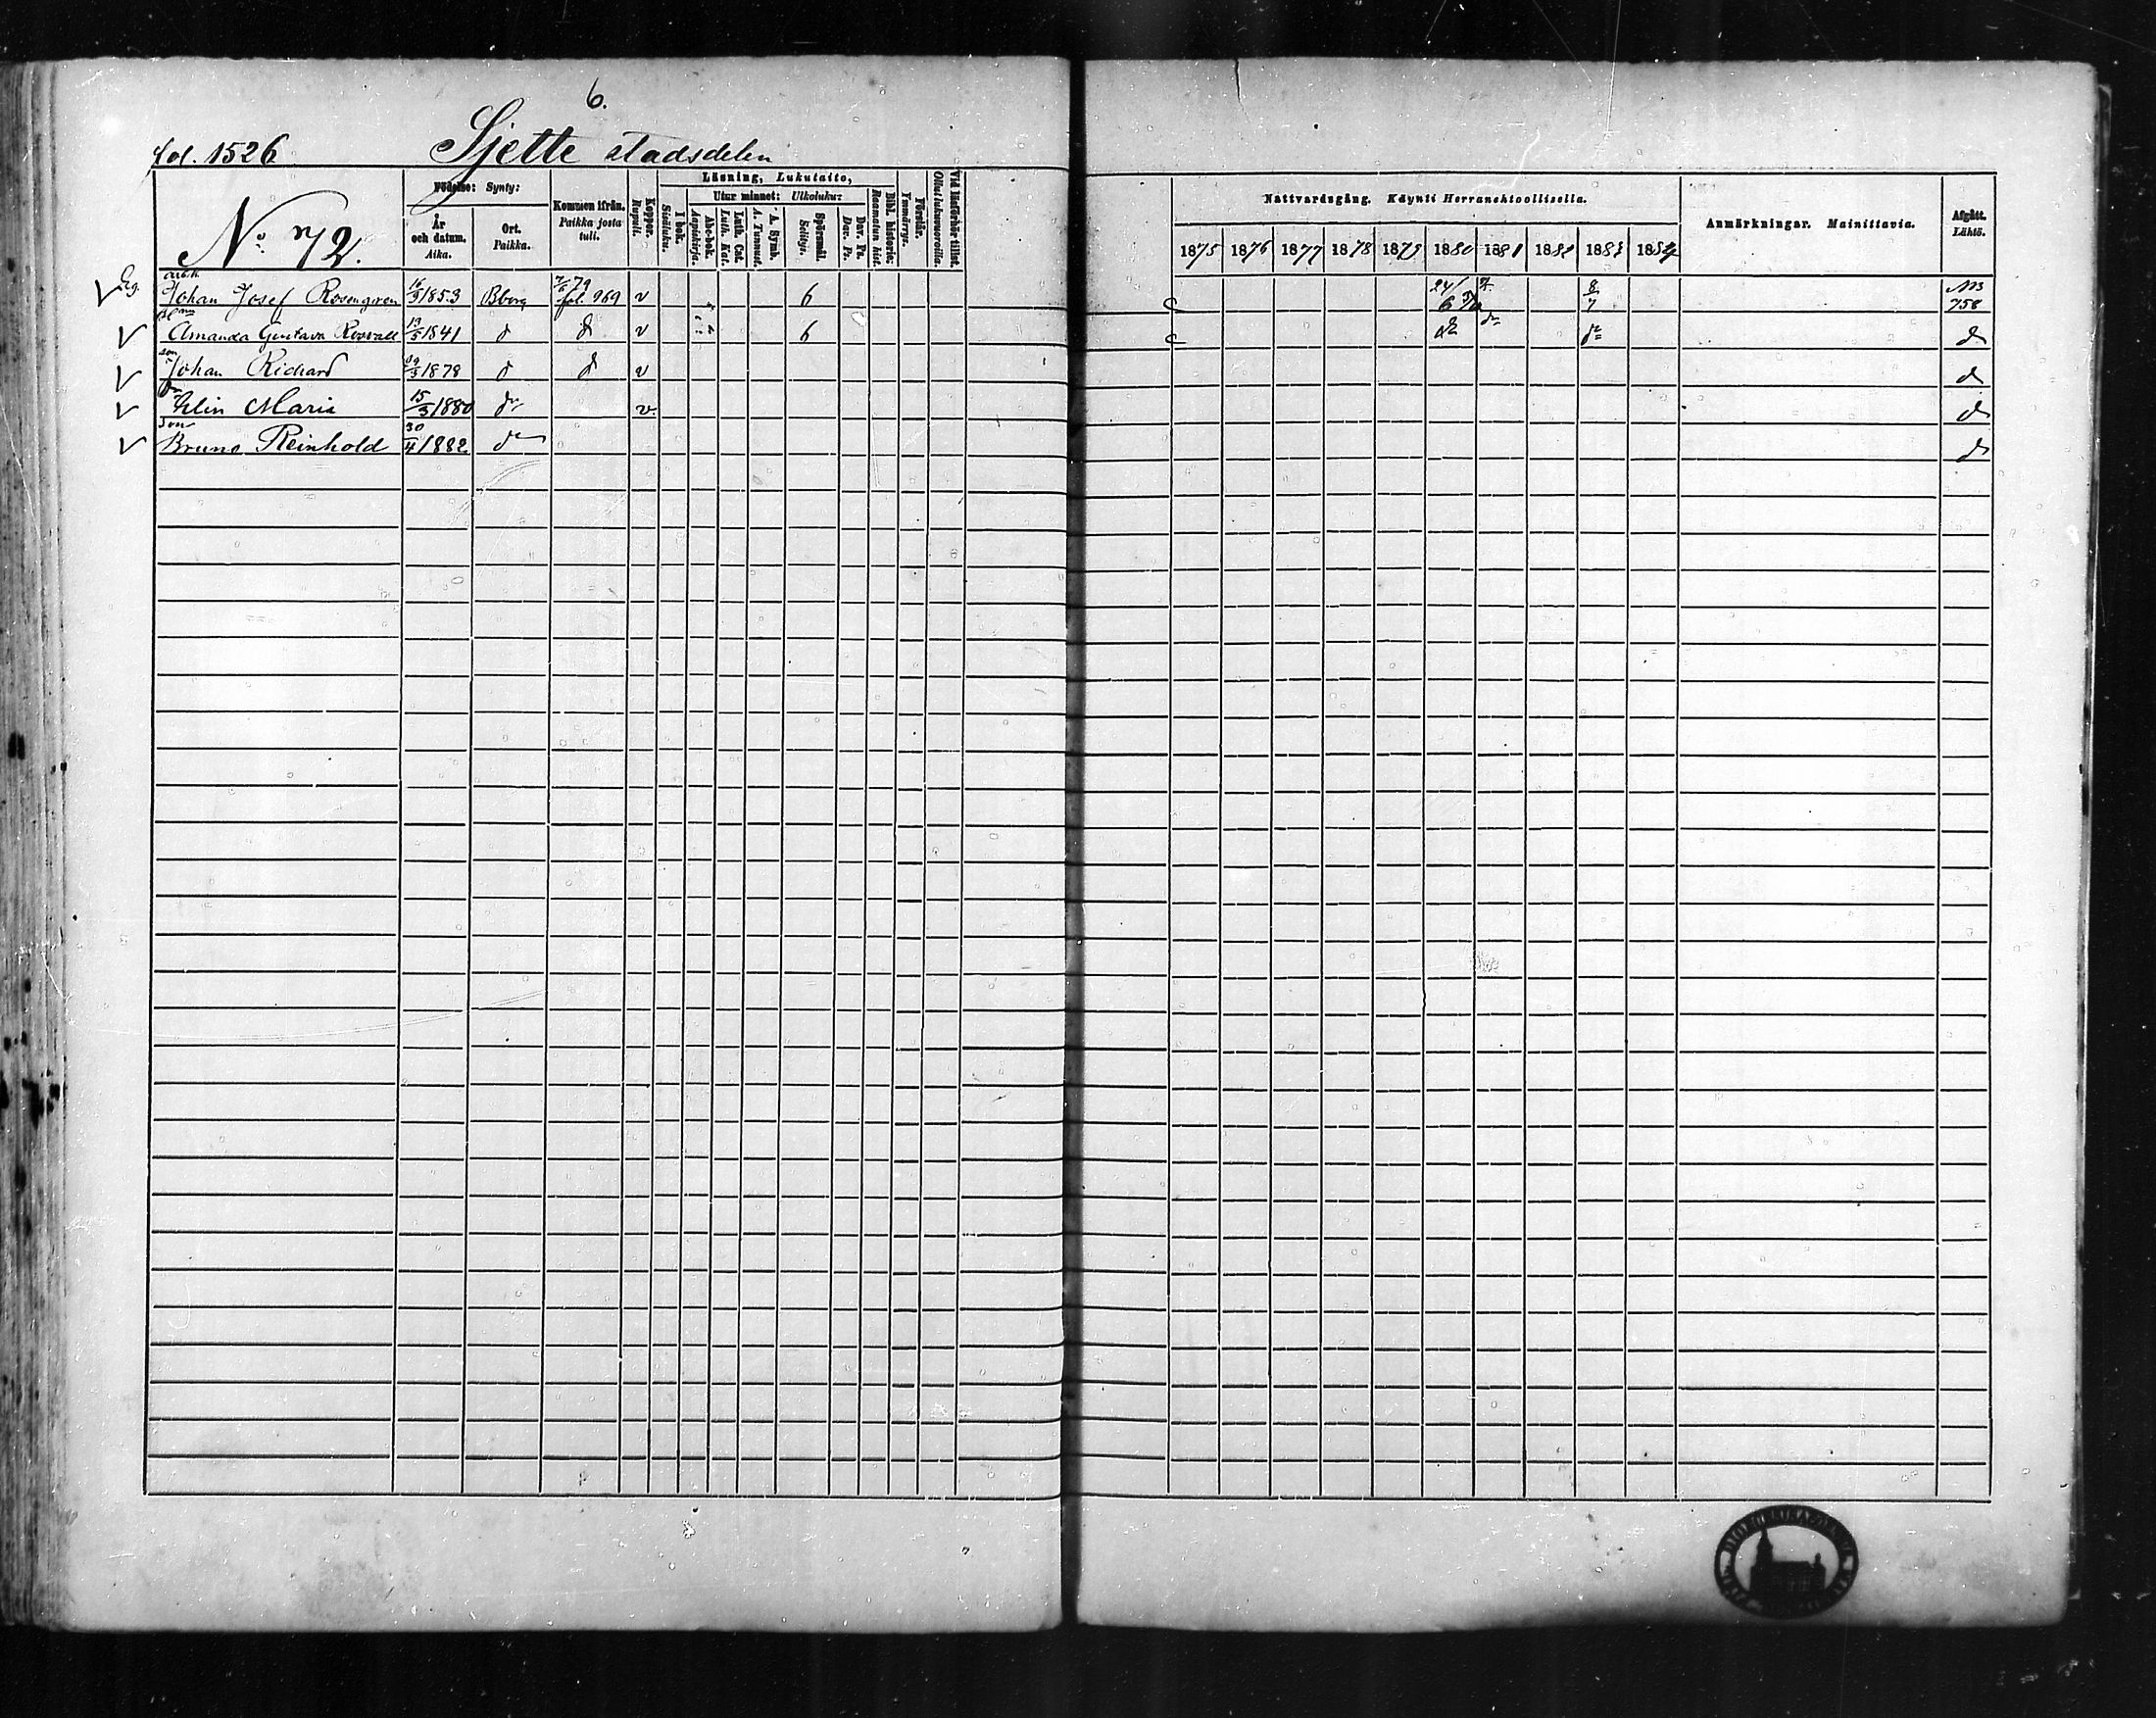 6.
fol. 1526 Sjette stadsdelen
No. 72.
Födelse: Synty:
År och datum. Aika.
Ort. Paikka.
Kommen ifrån. Paikka josta tuli.
Koppor. Rupuli.
Läsning, Lukutaito,
I bok. Sisäluku.
Utur minnet: Ulkoluku:
Abc-bok. Aapiskirja.
Luth. Cat. Luth. Kat.
A. Symb. A. Tunnust.
Spörsmål. Selitys.
Dav. Ps. Dav. Ps.
Bibl. historie: Raamatun hist.
Förstår. Ymmärrys.
Vid läsförhör tillst. Ollut lukuvuoroilla.
Nattvardsgång. Käynti Herranehtoollisella.
1875 1876 1877 1878 1879 1880 1881 1882 1883 1884
Anmärkningar. Mainittavia.
Afgått. Lähtö.
Eg. arb.k. Johan Josef Rosengren 16/3 1853 Bborg fol. 969 v 6 24/6 8/7 758
Amanda Gustava Rosvall 19/5 1841 d d v 6 do do do d
son Johan Richard 29/3 1878 d d v d
Elin Maria 15/3 1880 do v d
Son Bruno Reinhold 30/4 1882 do d